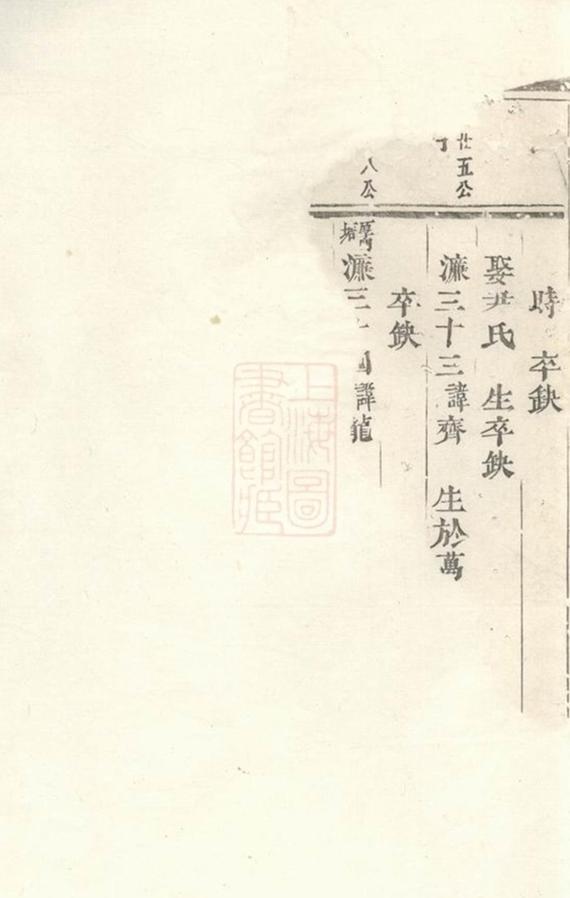 時 卒缺
娶尹氏 生卒缺
廿五公
濂三十三諱齊 生於萬
卒缺
八公
濂三十 諱龍
上海圖書館藏